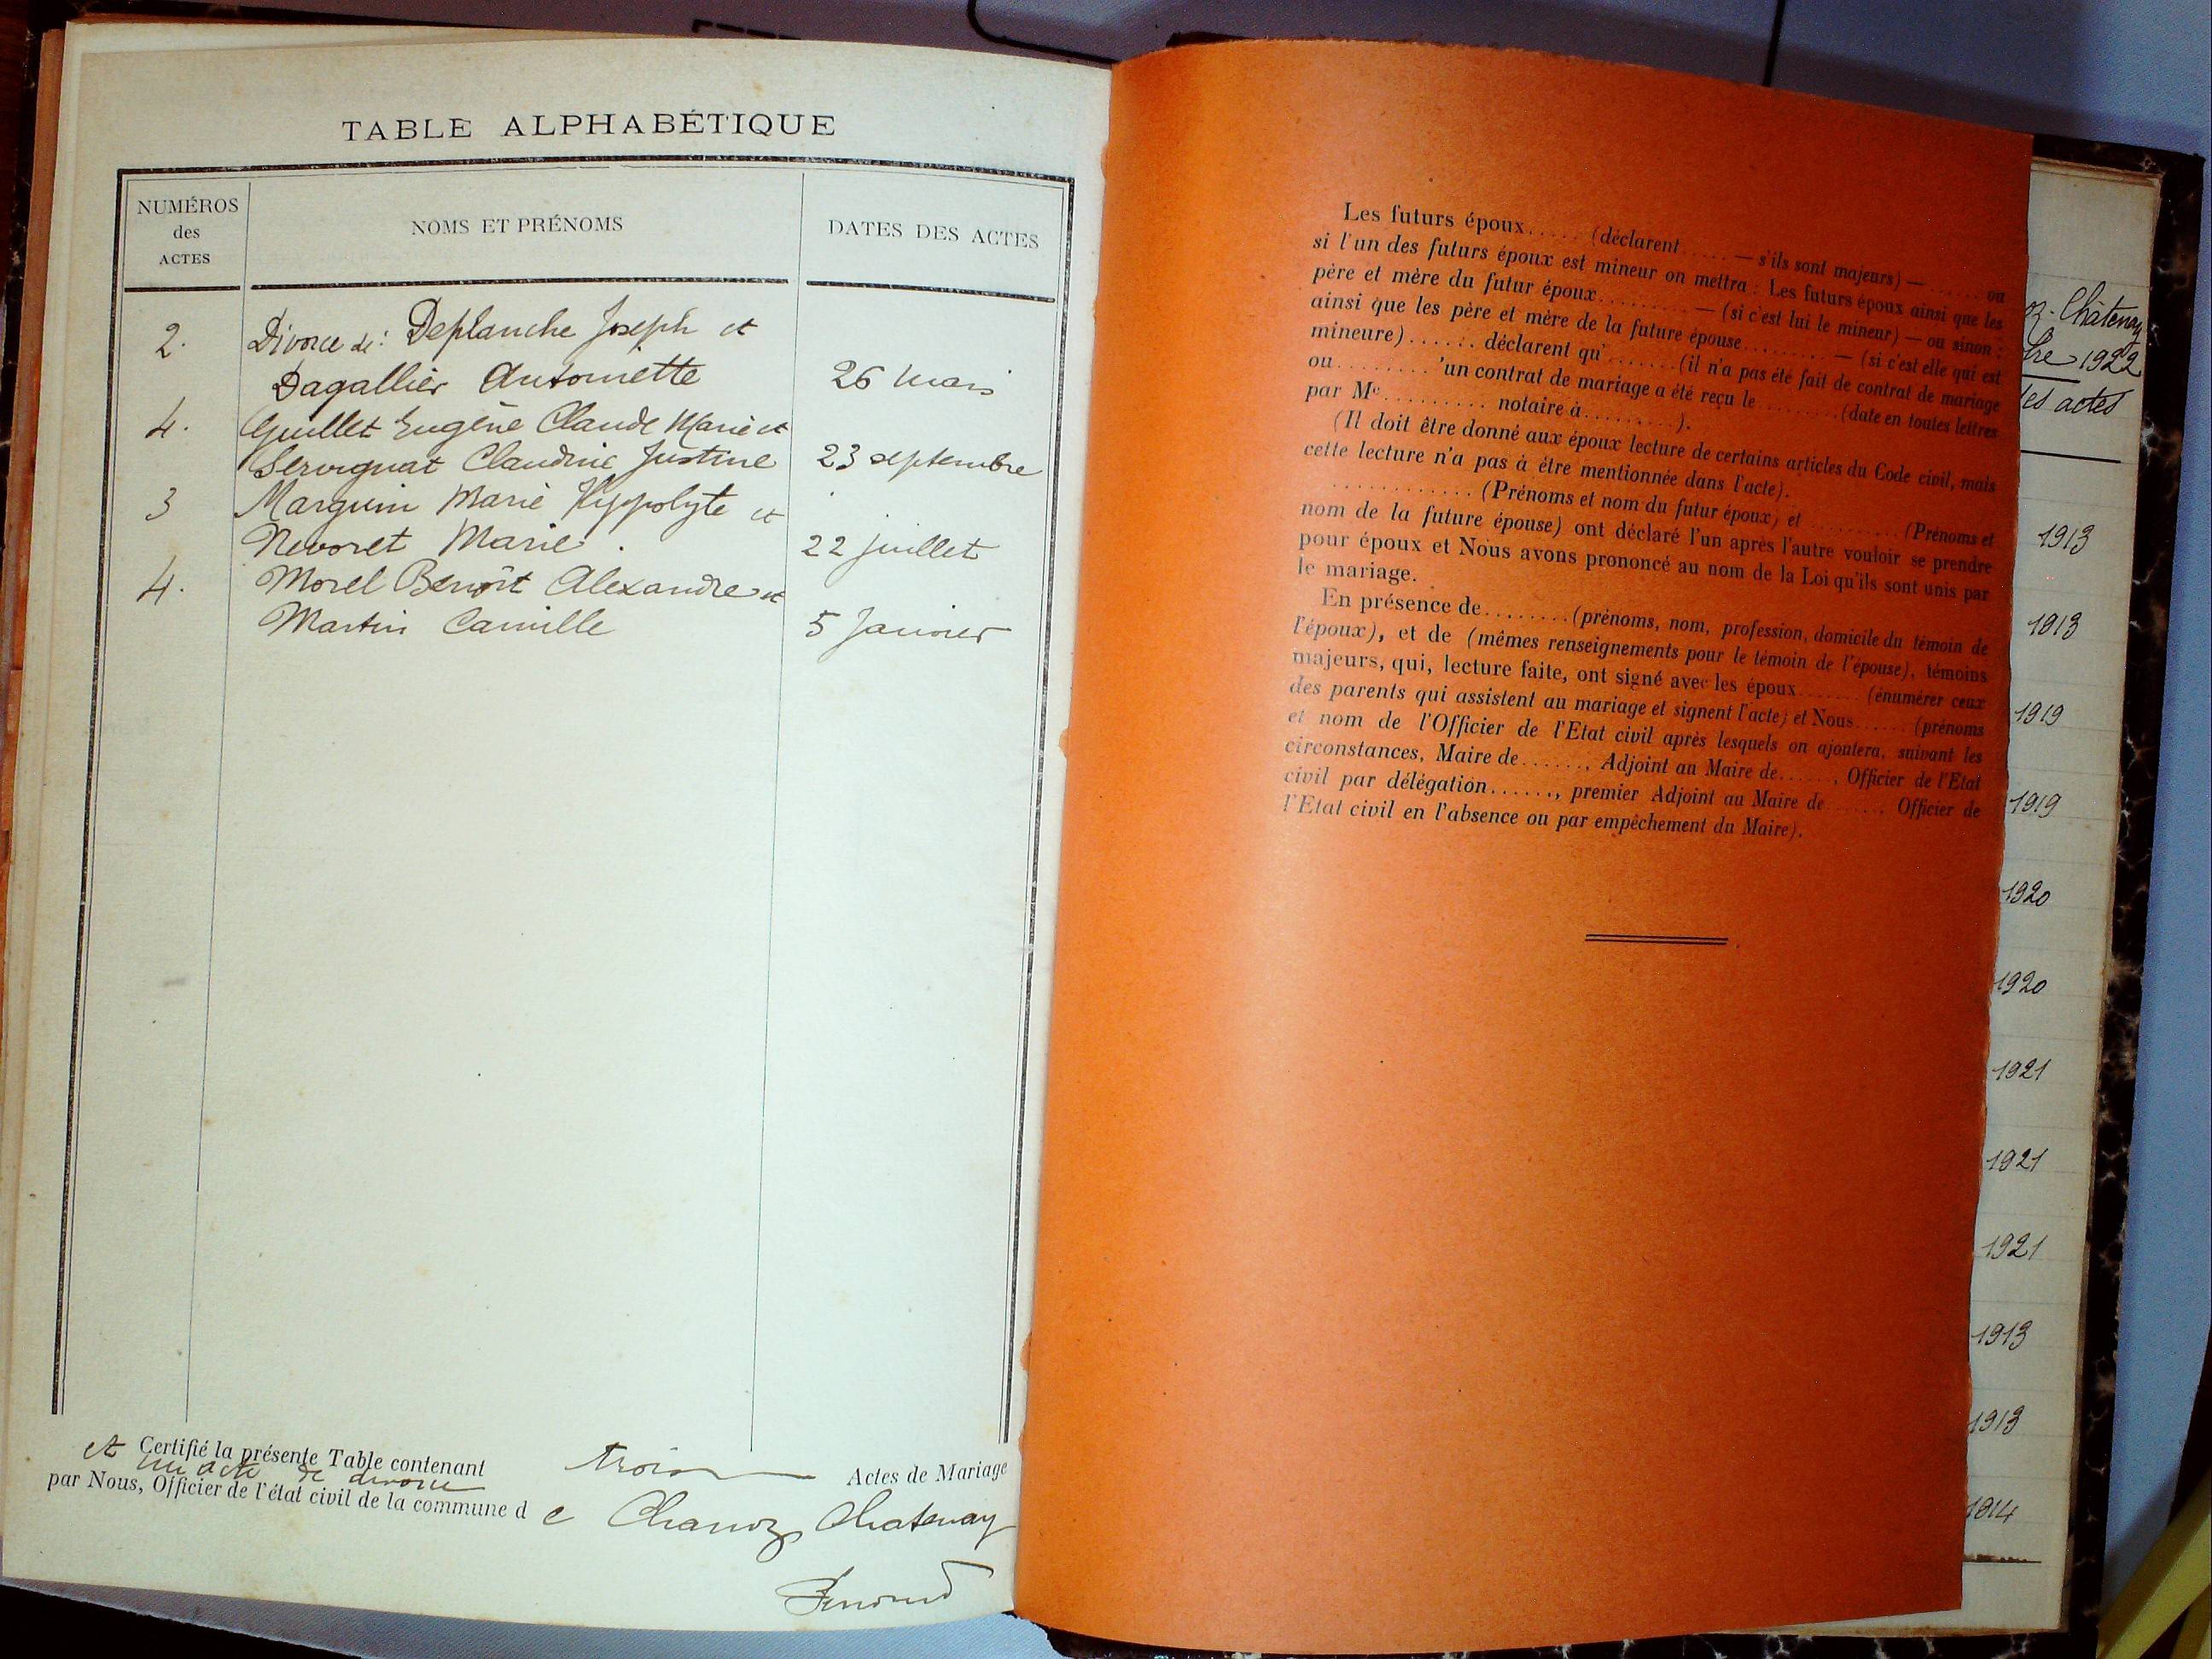 TABLE ALPHABÉTIQUE
NUMÉROS
des
ACTES
NOMS ET PRÉNOMS
DATES DES ACTES
2. Divorce de: Deplanche Joseph et
Dagallier Antoinette 26 mars
4. Guillet Eugène Claude Marie et
Servignat Claudine Justine 23 septembre
3 Marguin Marie Hyppolyte et
Nevoret Marie. 22 juillet
4. Morel Benoît Alexandre et
Martin Camille 5 Janvier
Certifié la présente Table contenant trois Actes de Mariage
et un acte de divorce
par Nous, Officier de l'état civil de la commune de Chanoz Chatenay
Les futurs époux..... (déclarent ..... — s'ils sont majeurs) — ...... ou
si l'un des futurs époux est mineur on mettra : Les futurs époux ainsi que les
père et mère du futur époux ......... — (si c'est lui le mineur) — ou sinon :
ainsi que les père et mère de la future épouse ......... — (si c'est elle qui est
mineure) ...... déclarent qu' ....... (il n'a pas été fait de contrat de mariage
ou ......... 'un contrat de mariage a été reçu le ......... (date en toutes lettres
par Me .......... notaire à ........).
(Il doit être donné aux époux lecture de certains articles du Code civil, mais
cette lecture n'a pas à être mentionnée dans l'acte).
............. (Prénoms et nom du futur époux) et ......... (Prénoms et
nom de la future épouse) ont déclaré l'un après l'autre vouloir se prendre
pour époux et Nous avons prononcé au nom de la Loi qu'ils sont unis par
le mariage.
En présence de ........ (prénoms, nom, profession, domicile du témoin de
l'époux), et de (mêmes renseignements pour le témoin de l'épouse), témoins
majeurs, qui, lecture faite, ont signé avec les époux ....... (énumérer ceux
des parents qui assistent au mariage et signent l'acte) et Nous ...... (prénoms
et nom de l'Officier de l'Etat civil après lesquels on ajoutera, suivant les
circonstances, Maire de ......, Adjoint au Maire de ......, Officier de l'Etat
civil par délégation ......, premier Adjoint au Maire de ...... Officier de
l'Etat civil en l'absence ou par empêchement du Maire).
oz-Châtenay
bre 1922
des actes
1913
1913
1919
1919
1920
1920
1921
1921
1921
1913
1913
1914